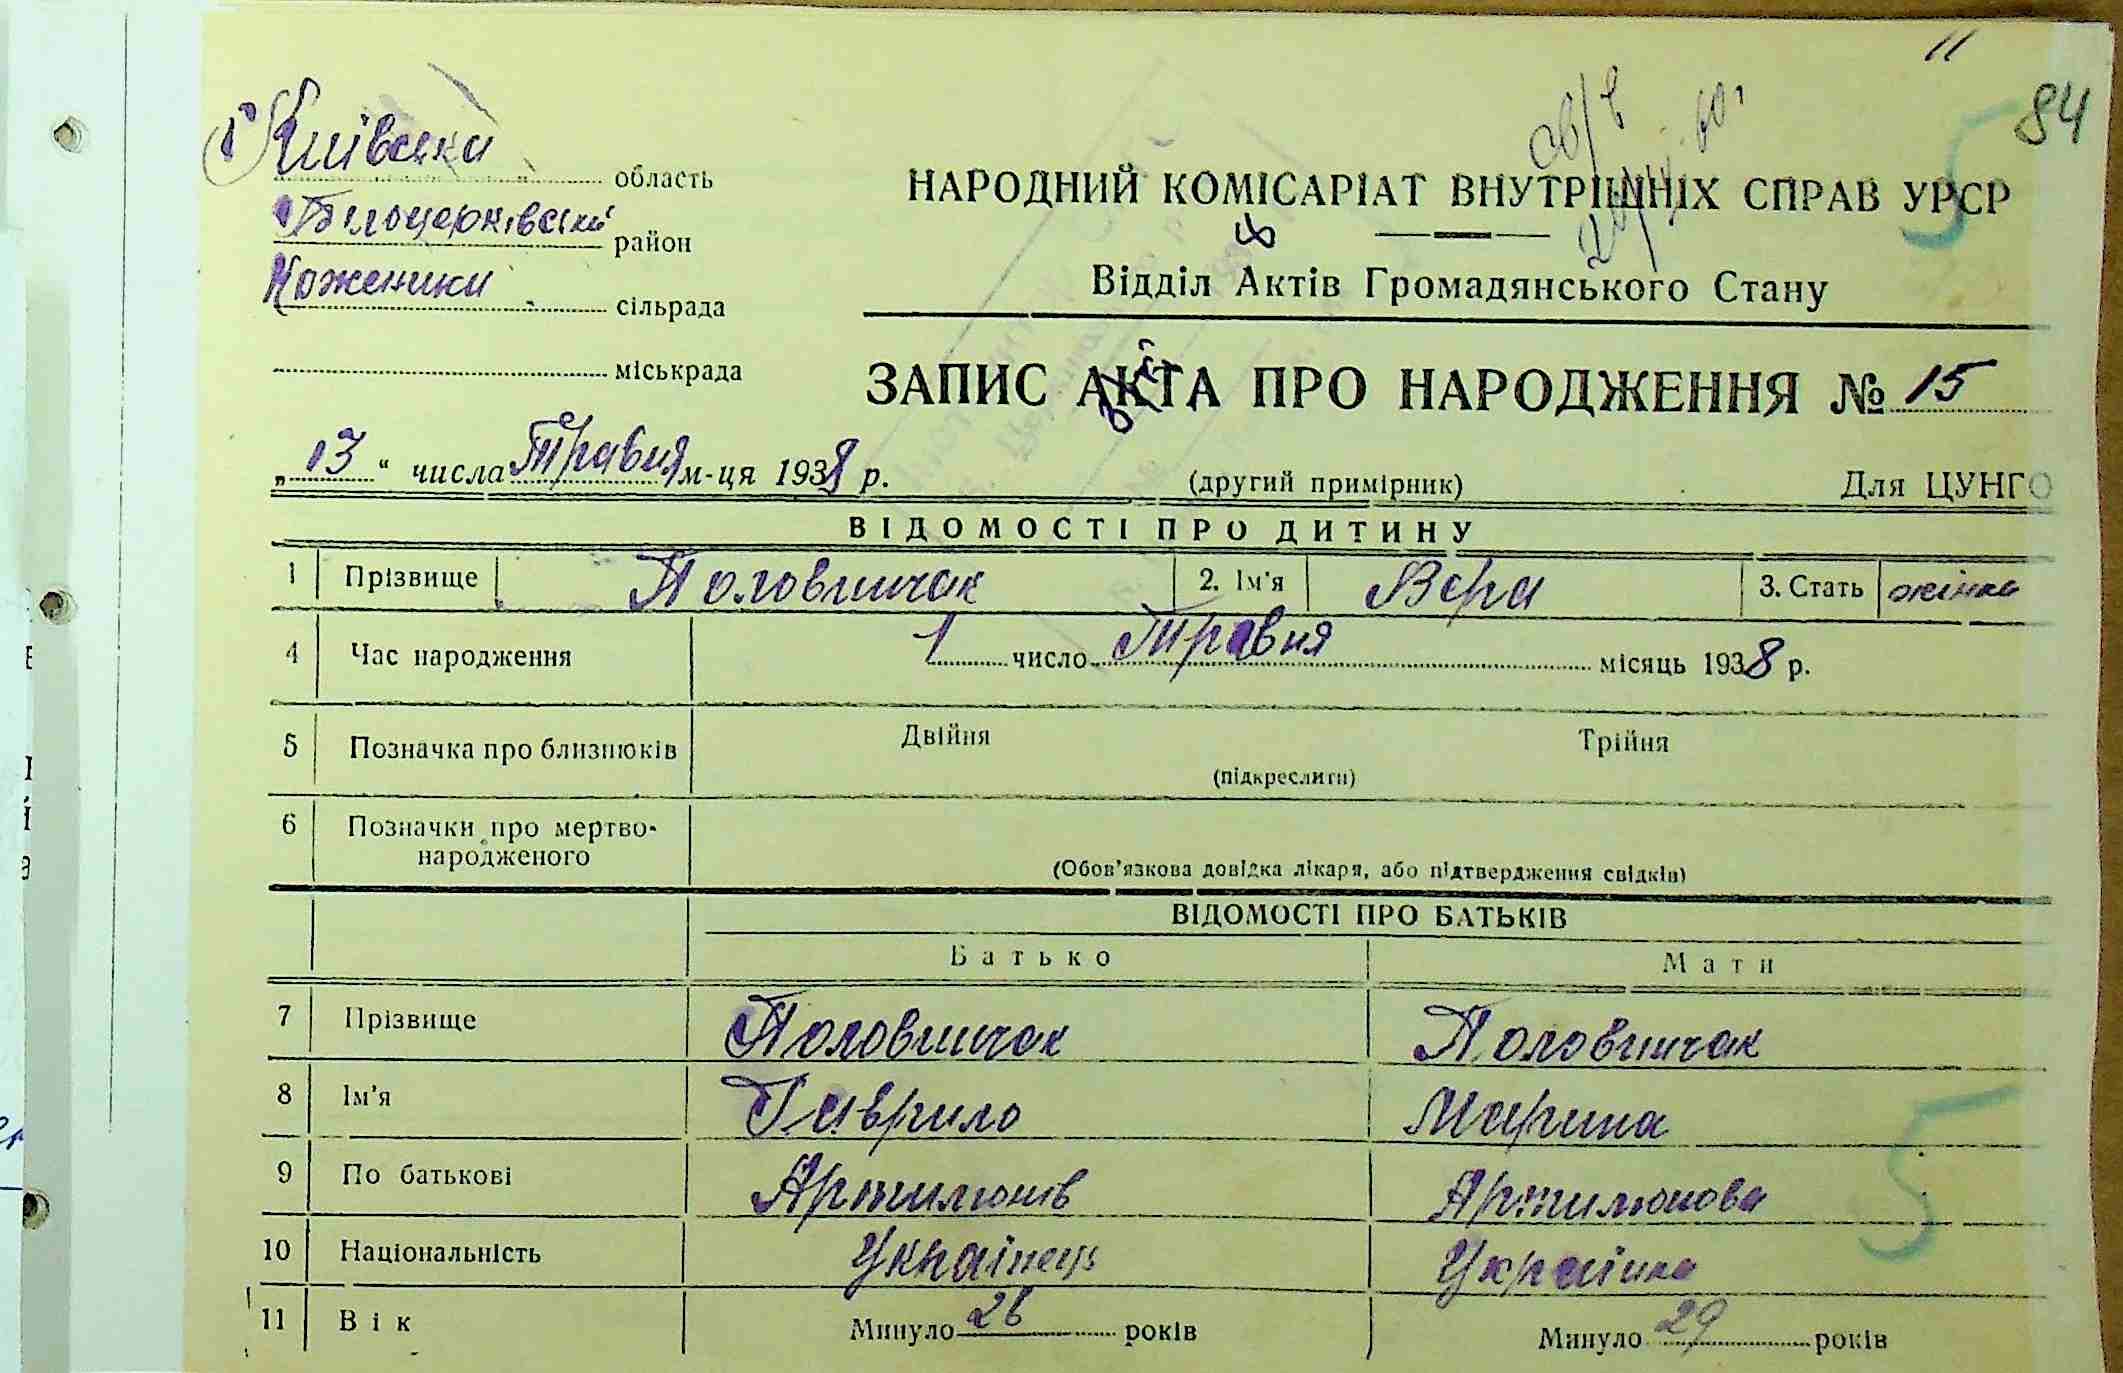 84
Київська область
Білоцерківський район
Коженики сільрада
міськрада
НАРОДНИЙ КОМІСАРІАТ ВНУТРІШНІХ СПРАВ УРСР
Відділ Актів Громадянського Стану
ЗАПИС АКТА ПРО НАРОДЖЕННЯ № 15
„13“ числа Травня м-ця 1938 р.
(другий примірник) Для ЦУНГО
ВІДОМОСТІ ПРО ДИТИНУ
1 Прізвище Половинчак 2. Ім'я Вера 3. Стать жінка
4 Час народження 1 число Травня місяць 1938 р.
5 Позначка про близнюків Двійня Трійня
(підкреслити)
6 Позначки про мертво-
народженого
(Обов'язкова довідка лікаря, або підтвердження свідків)
ВІДОМОСТІ ПРО БАТЬКІВ
Батько Мати
7 Прізвище Половинчак Половинчак
8 Ім'я Гаврило Марина
9 По батькові Артилюнів Артилюнова
10 Національність Українець Українка
11 Вік Минуло 26 років Минуло 29 років
5
5